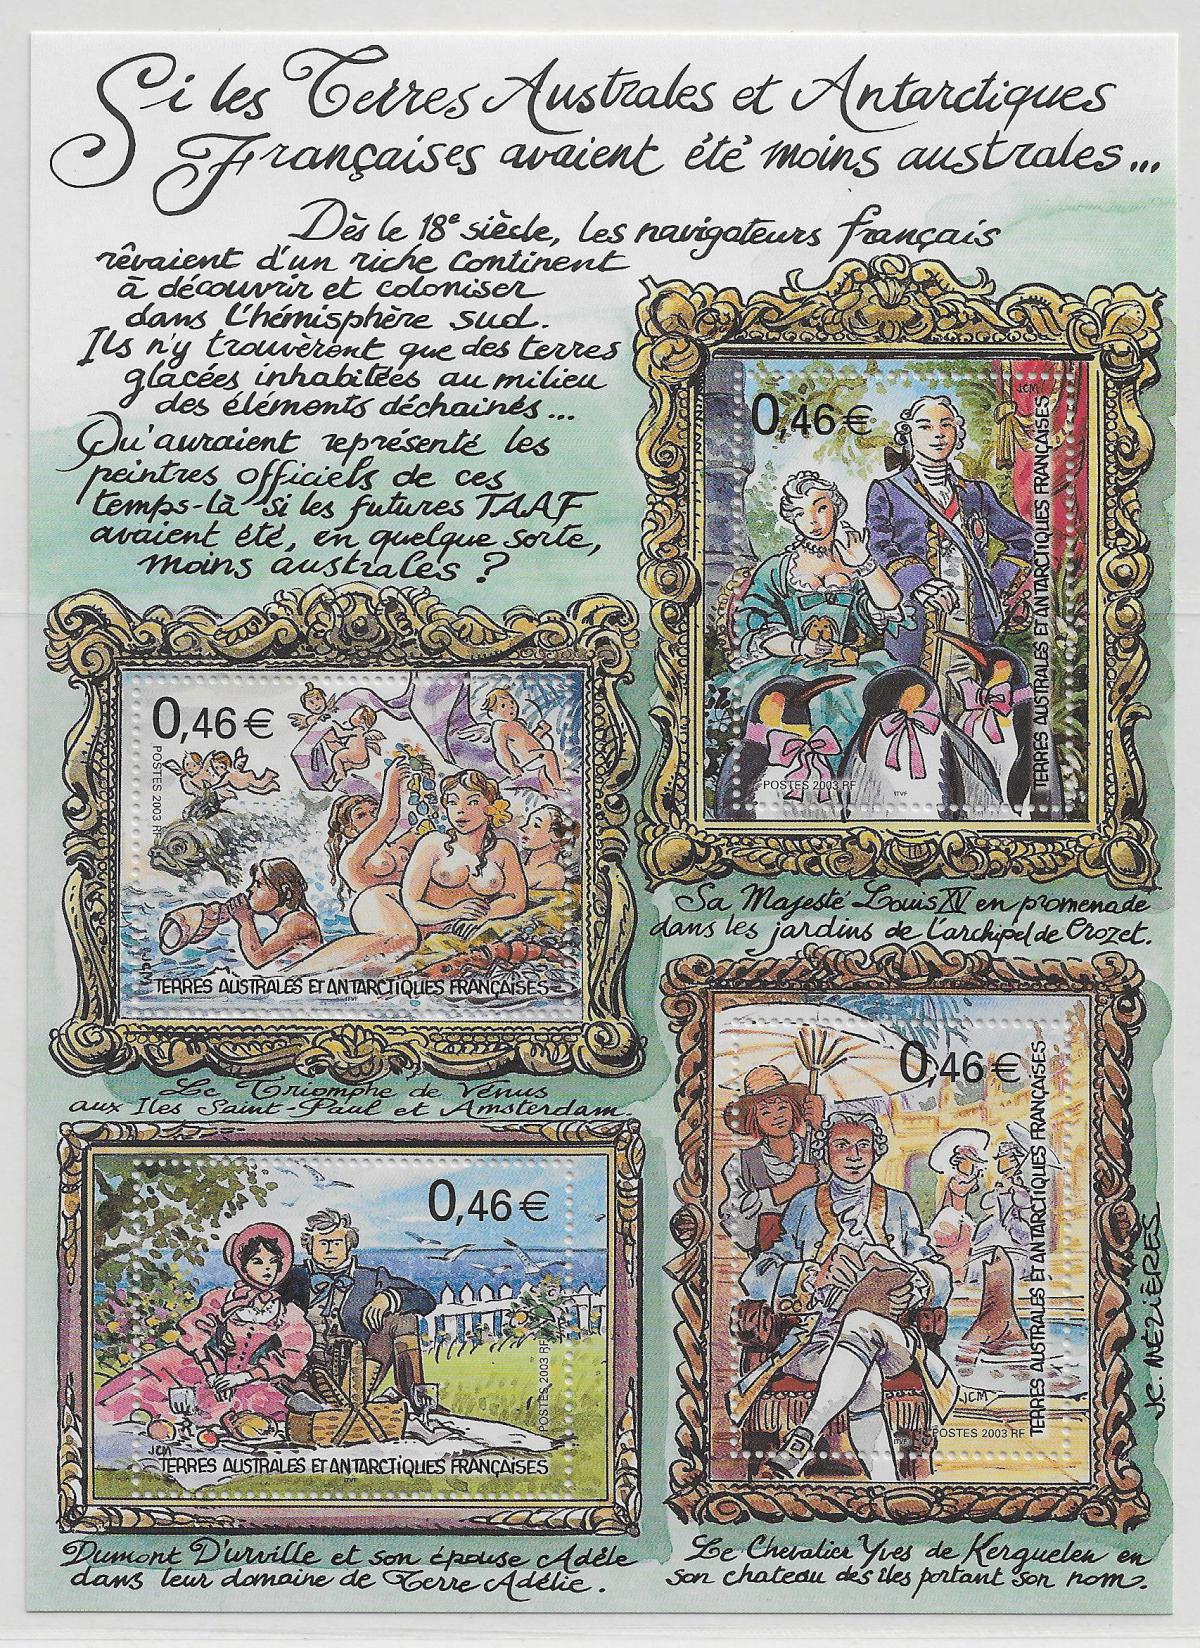 Si les Terres Australes et Antarctiques
Françaises avaient été moins australes...
Dès le 18e siècle, les navigateurs français
rêvaient d'un riche continent
à découvrir et coloniser
dans l'hémisphère sud.
Ils n'y trouvèrent que des terres
glacées inhabitées au milieu
des éléments déchainés...
Qu'auraient représenté les
peintres officiels de ces
temps-là si les futures TAAF
avaient été, en quelque sorte,
moins australes ?
JCM
0,46 €
TERRES AUSTRALES ET ANTARCTIQUES FRANÇAISES
POSTES 2003 RF
ITVF
Sa Majesté Louis XV en promenade
dans les jardins de l'archipel de Crozet.
0,46 €
POSTES 2003 RF
JCM
TERRES AUSTRALES ET ANTARCTIQUES FRANÇAISES
ITVF
Le Triomphe de Vénus
aux Iles Saint-Paul et Amsterdam.
0,46 €
TERRES AUSTRALES ET ANTARCTIQUES FRANÇAISES
JCM
POSTES 2003 RF
ITVF
J.C. MÉZIÈRES
0,46 €
POSTES 2003 RF
JCM
TERRES AUSTRALES ET ANTARCTIQUES FRANÇAISES
ITVF
Dumont D'urville et son épouse Adèle
dans leur domaine de Terre Adélie.
Le Chevalier Yves de Kerguelen en
son chateau des îles portant son nom.